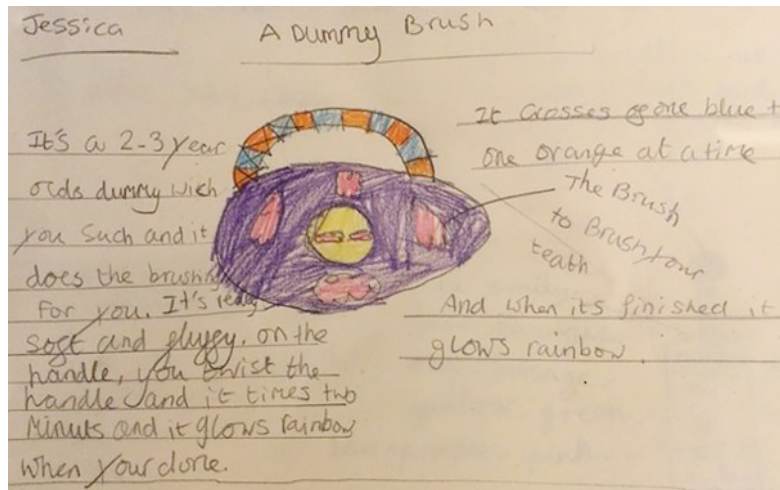 Jessica
A Dummy Brush
It's a 2-3 year
olds dummy wich
you such and it
does the brushing
for you. It's really
soft and gluggy. on the
handle, you twist the
handle and it times two
Minuts and it glows rainbow
when your done.
It crosses of one blue +
one orange at a time
The Brush
to Brush your
teath
And when its finished it
glows rainbow.